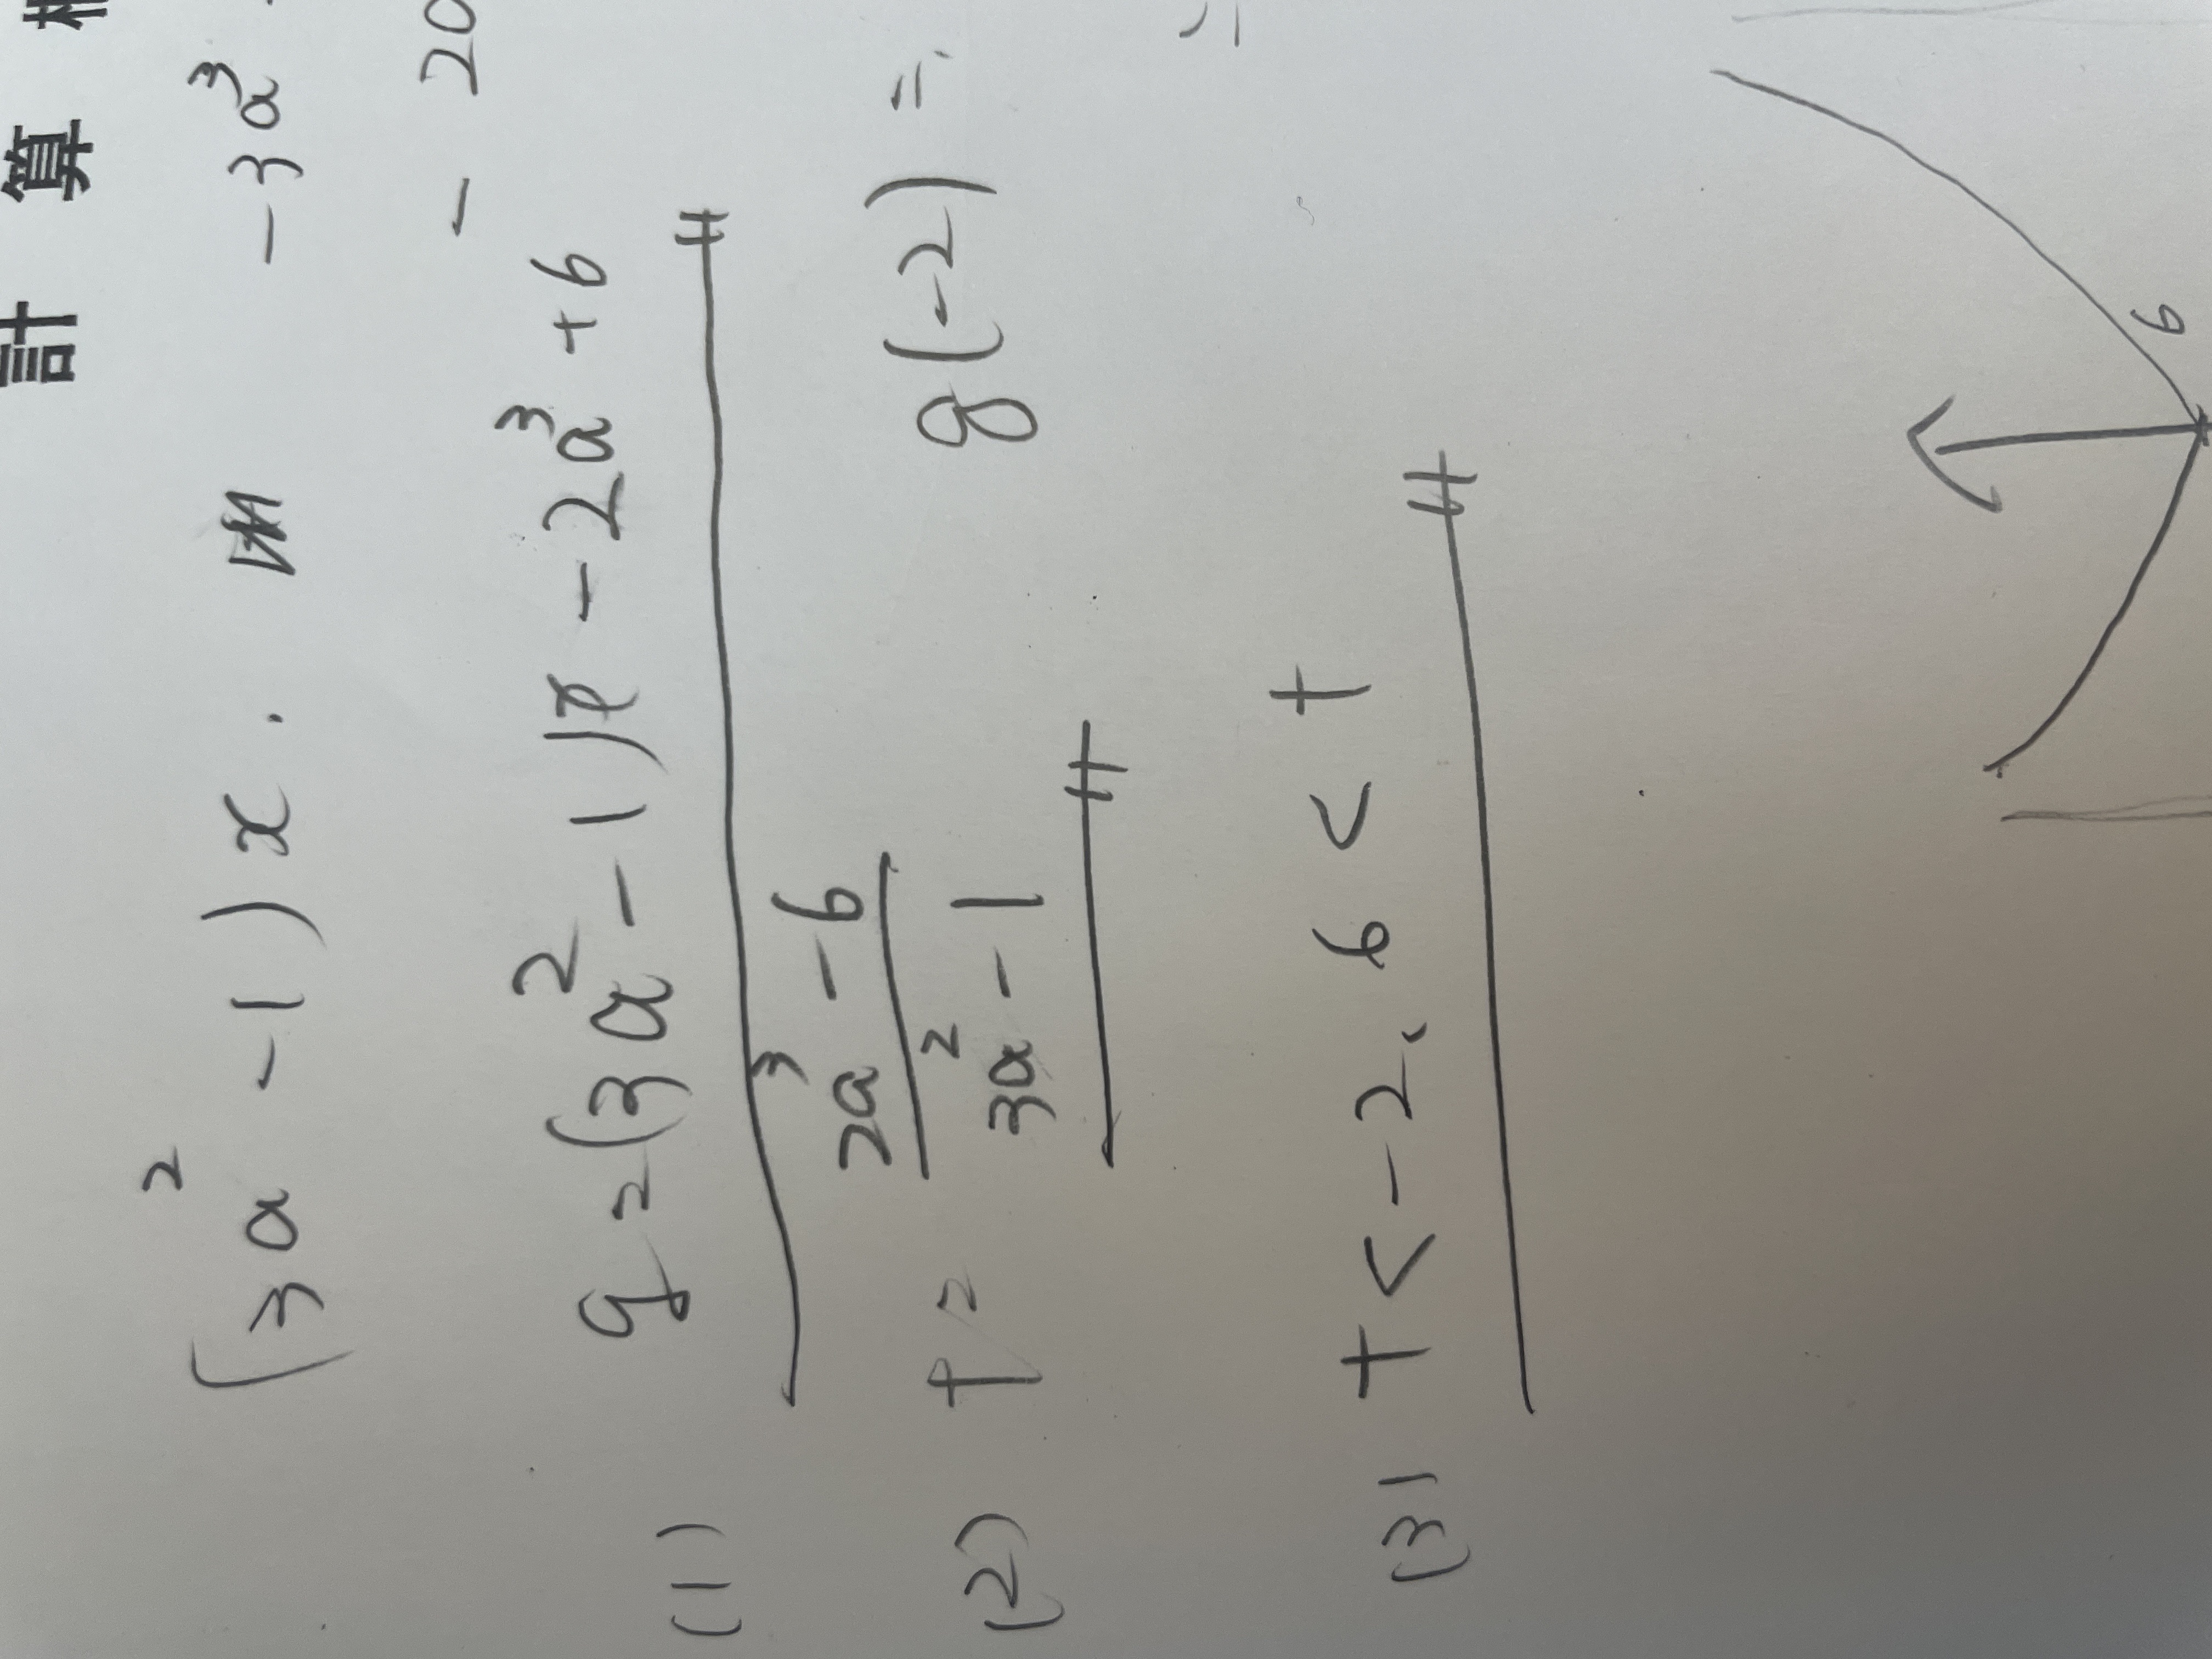 計 算
(3a² - 1)x. - 3a³
- 20
(1) q = (3a² - 1)p - 2a³ + 6
(2) p = \frac{2a³ - 6}{3a² - 1} g(-2) =
(3) t < -2、6 < t
6